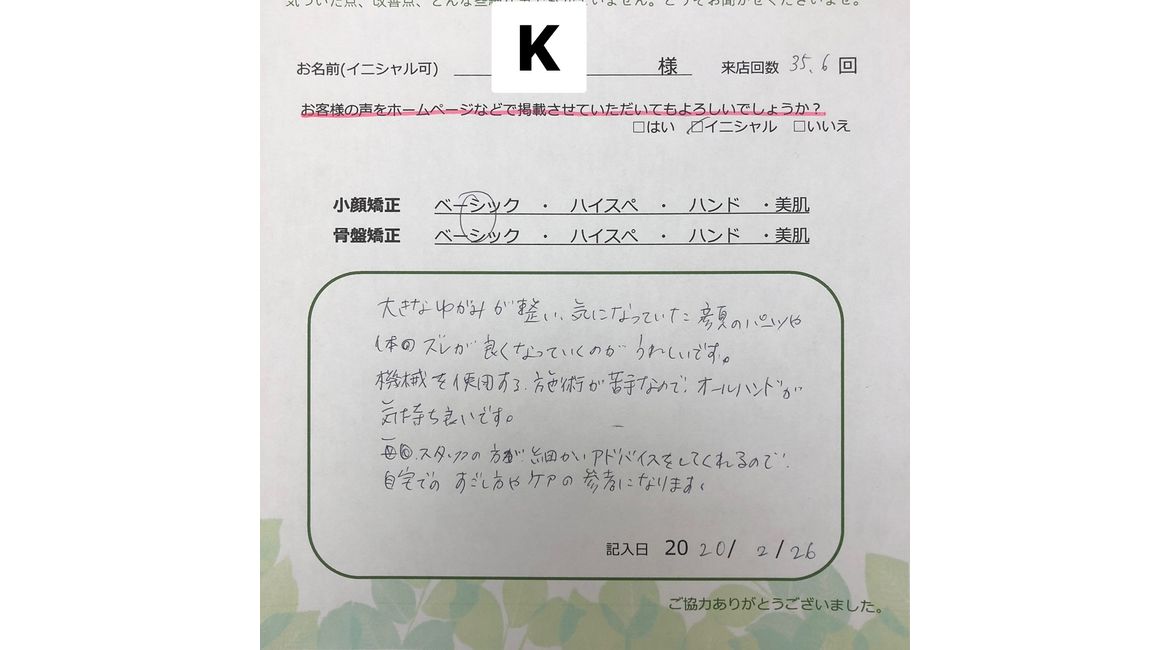 気づいた点、改善点、どんな些細 いません。どうぞお聞かせくださいませ。
お名前(イニシャル可) K 様 来店回数 35、6 回
お客様の声をホームページなどで掲載させていただいてもよろしいでしょうか？
□はい ☑イニシャル □いいえ
小顔矯正 ベーシック ・ ハイスペ ・ ハンド ・美肌
骨盤矯正 ベーシック ・ ハイスペ ・ ハンド ・美肌
大きなゆがみが整い、気になっていた顔のパーツや
体のズレが良くなっていくのがうれしいです。
機械を使用する施術が苦手なので、オールハンドが
気持ち良いです。
スタッフの方が細かいアドバイスをしてくれるので、
自宅でのすごし方やケアの参考になります。
記入日 2020/ 2/26
ご協力ありがとうございました。